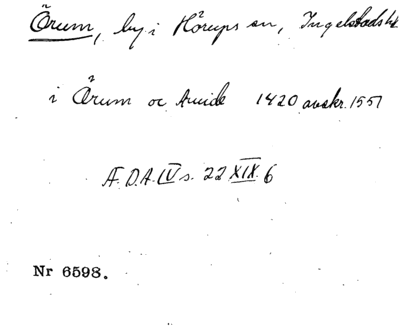 Örum, by i Hörups sn, Ingelstads hd
i Örum oc Amide 1420 avskr. 1551
Æ.D.A. IV s. 22 XIX. 6
Nr 6598.